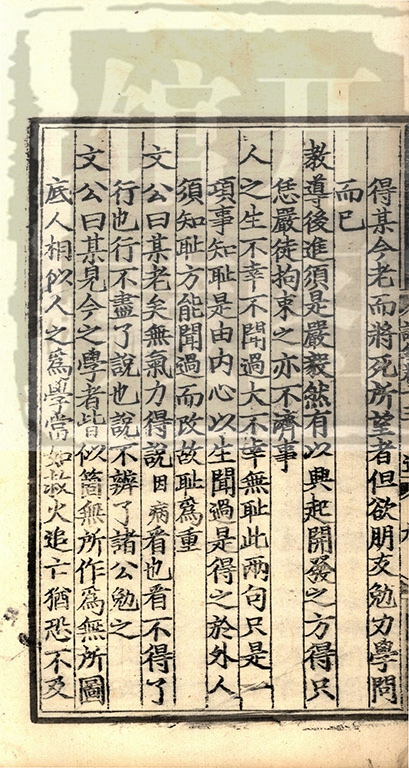 得某今老而將死所望者但欲朋友勉力學問
而已
教導後進須是嚴毅然有以興起開發之方得只
恁嚴徒拘束之亦不濟事
人之生不幸不聞過大不幸無恥此兩句只是一
項事知恥是由内心以生聞過是得之於外人
須知恥方能聞過而改故恥爲重
文公曰某老矣無氣力得說因病看也看不得了
行也行不盡了說也說不辨了諸公勉之
文公曰某見今之學者皆似箇無所作爲無所圖
底人相似人之爲學當如救火追亡猶恐不及